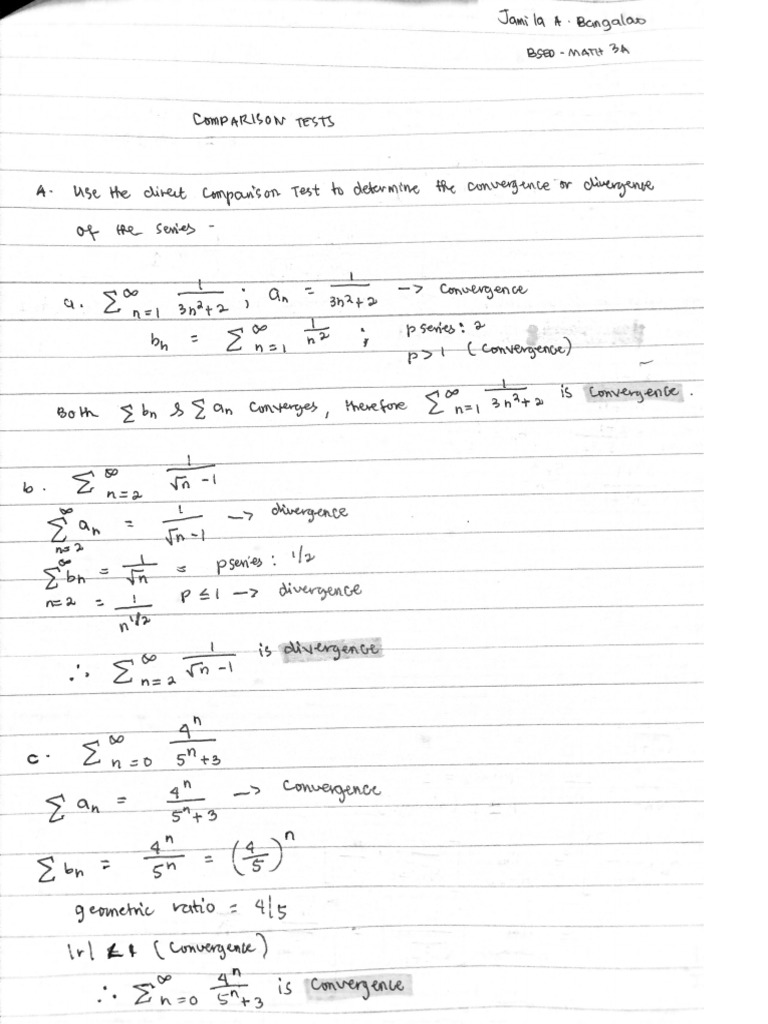 Jamila A. Bangalao
BSED - MATH 3A
COMPARISON TESTS
A. Use the direct Comparison Test to determine the convergence or divergence
of the series -
a. ∑^∞ n=1 1/(3n²+2) ; aₙ = 1/(3n²+2) -> Convergence
bₙ = ∑^∞ n=1 1/n² ; p series: 2
p>1 (Convergence)
Both ∑bₙ & ∑aₙ Converges, therefore ∑^∞ n=1 1/(3n²+2) is Convergence.
b. ∑^∞ n=2 1/(√n -1)
∑^∞ n=2 aₙ = 1/(√n -1) -> divergence
∑^∞ n=2 bₙ = 1/√n = p series: 1/2
= 1/n^1/2 p ≤ 1 -> divergence
∴ ∑^∞ n=2 1/(√n -1) is divergence
c. ∑^∞ n=0 4ⁿ/(5ⁿ+3)
∑ aₙ = 4ⁿ/(5ⁿ+3) -> Convergence
∑ bₙ = 4ⁿ/5ⁿ = (4/5)ⁿ
geometric ratio = 4/5
|r| < 1 (Convergence)
∴ ∑^∞ n=0 4ⁿ/(5ⁿ+3) is Convergence